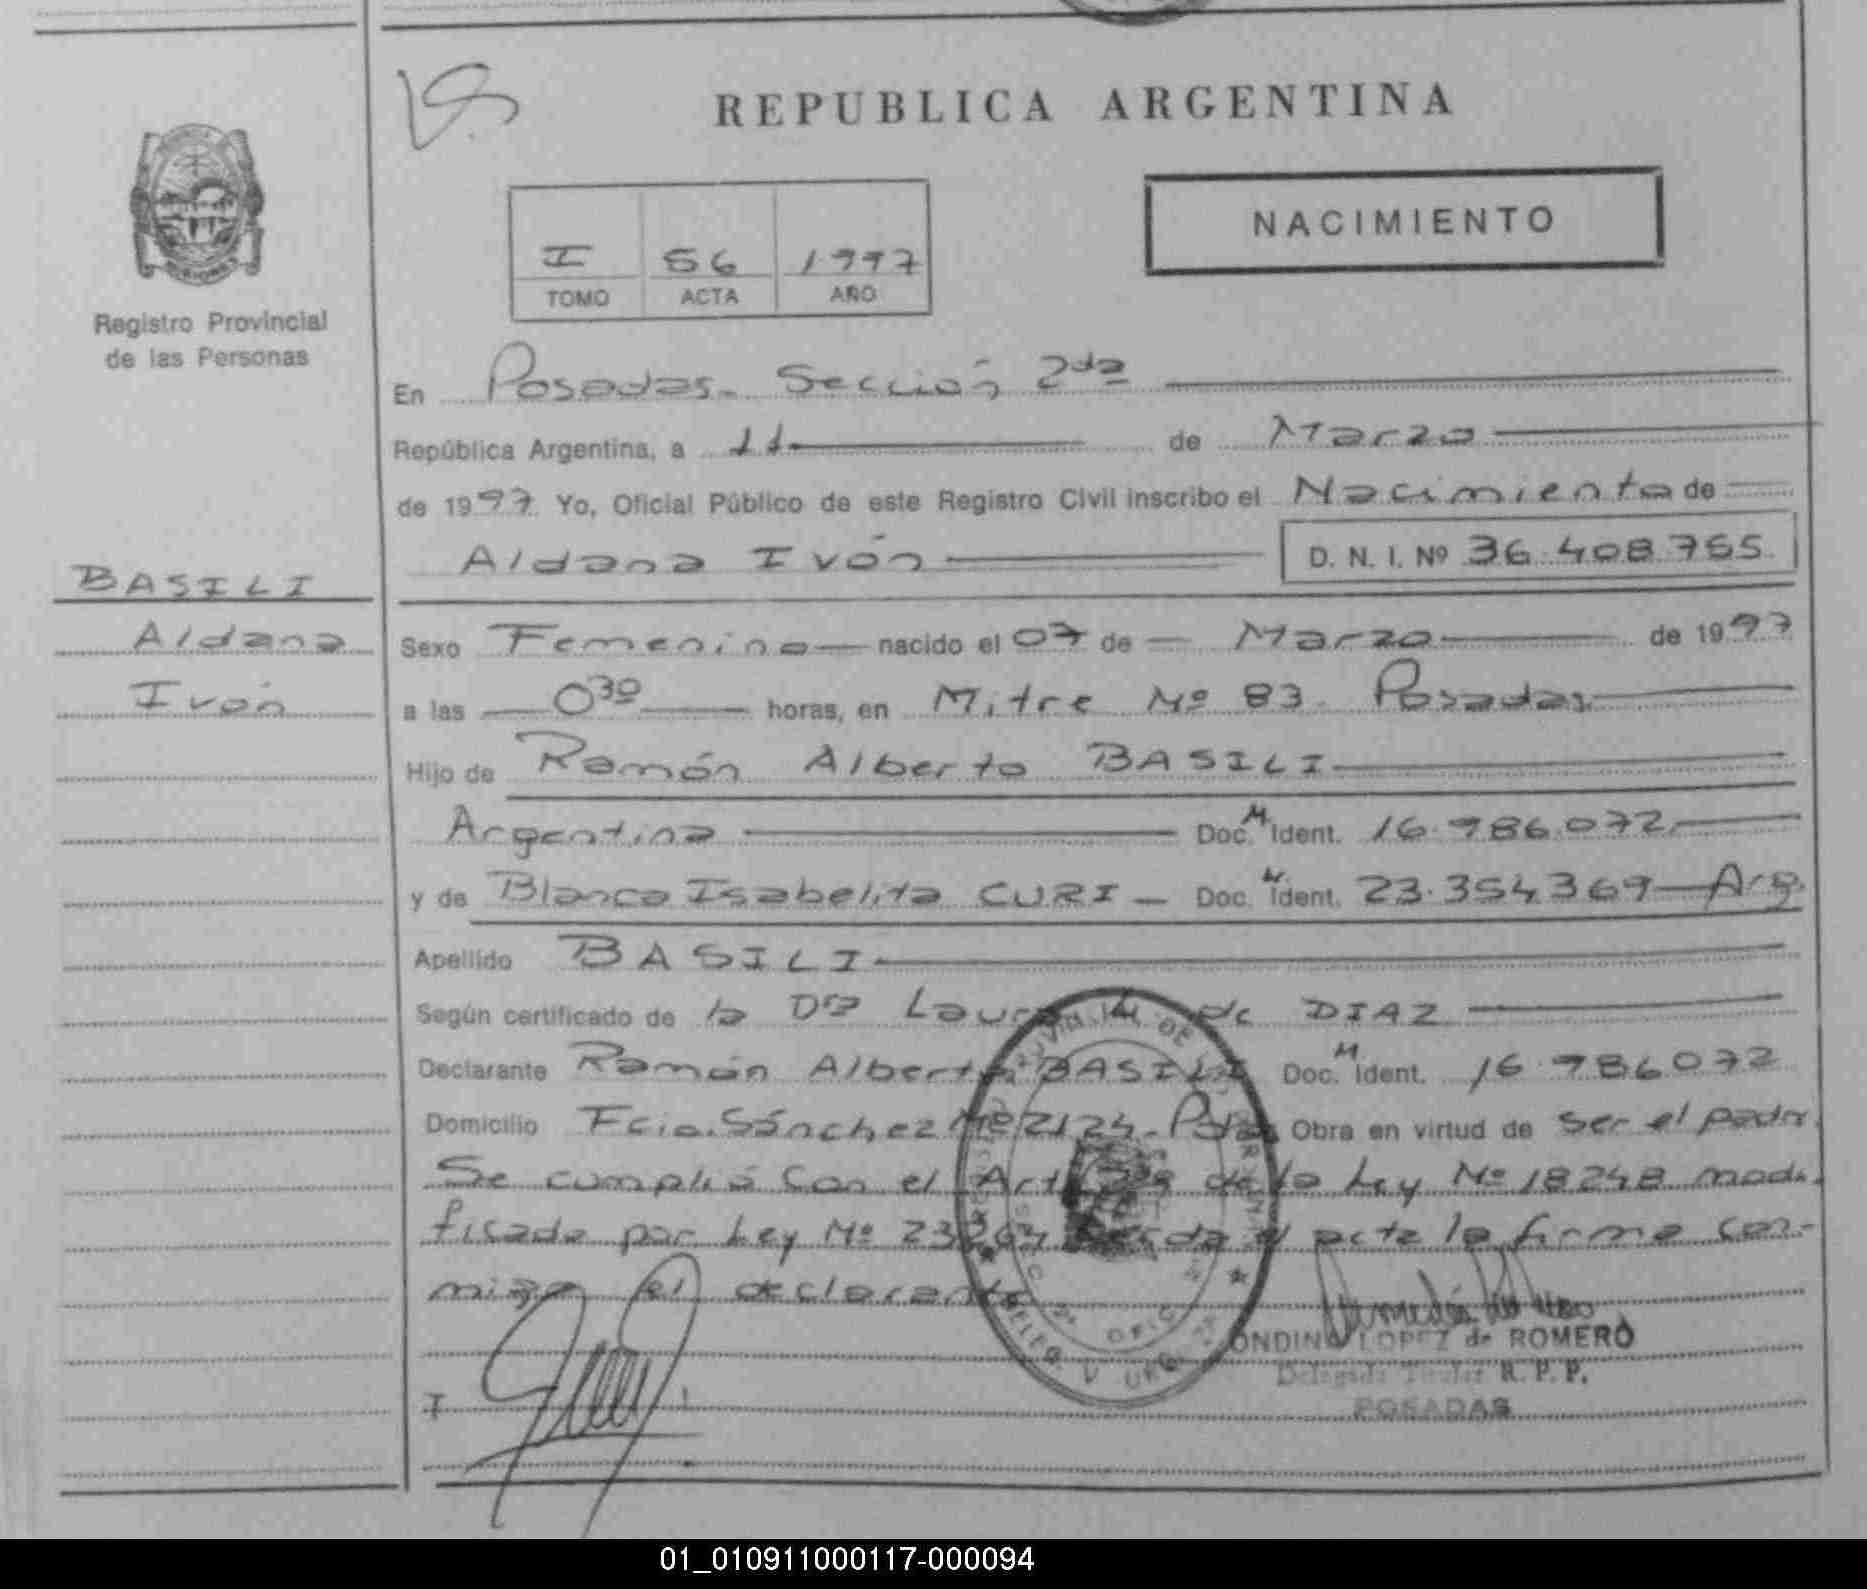 REPUBLICA ARGENTINA
NACIMIENTO
I 56 1997
TOMO ACTA AÑO
Registro Provincial
de las Personas
En Posadas. Sección 2da
República Argentina, a 11 de Marzo
de 1997 Yo, Oficial Público de este Registro Civil inscribo el Nacimiento de
Aldana Ivón D. N. I. Nº 36.408.765
BASILI
Aldana
Ivón
Sexo Femenino nacido el 07 de Marzo de 1997
a las 030 horas, en Mitre Nº 83. Posadas
Hijo de Ramón Alberto BASILI
Argentina Doc. M. Ident. 16.986.072
y de Blanca Isabelita CURI Doc. Ident. 23.354.369 Arg.
Apellido BASILI
Según certificado de la Dra Laura de DIAZ
Declarante Ramón Alberto BASILI Doc. M Ident. 16.986072
Domicilio Fcio. Sánchez Nº 2124. Pdas Obra en virtud de ser el padre
Se cumplió con el Art. de la Ley Nº 18248 modi-
ficada por Ley Nº el acta la firma con-
migo el declarante
ONDINA LOPEZ de ROMERO
Delegada Titular R. P. P.
POSADAS
01_010911000117-000094